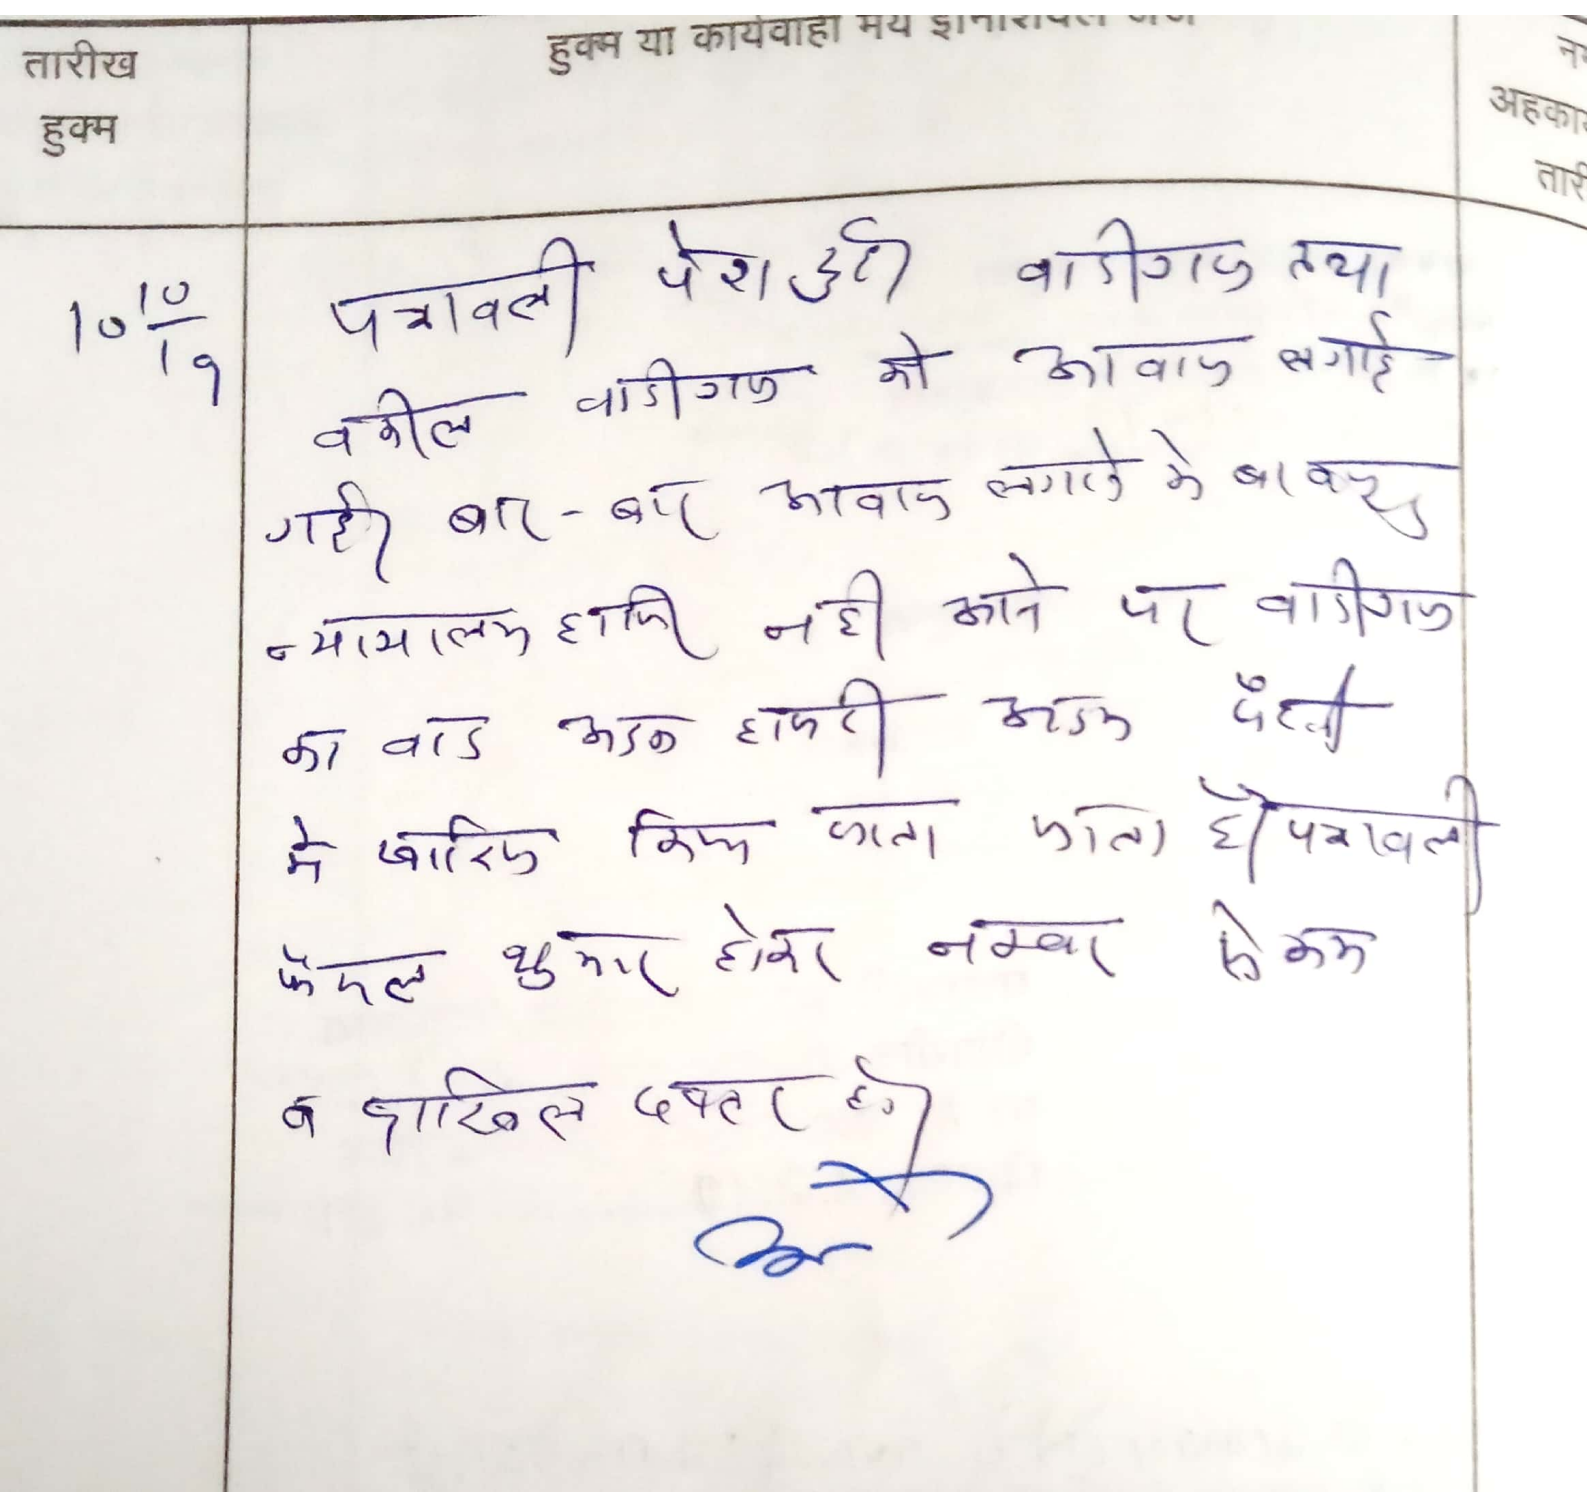 तारीख
हुक्म
हुक्म या कार्यवाही मय इनिशियल जज
अहका
तारी
10/10/19
पत्रावली पेश हुई। वादीगण तथा
वकील वादीगण को आवाज लगाई
गई। बार-बार आवाज लगाने के बावजूद
न्यायालय हाजिर नही आने पर वादीगण
का वाद अदम हाजरी अदम पैरवी
मे खारिज किया जाता जाता है। पत्रावली
फैसल शुमार होकर नम्बर से कम
व दाखिल दफ्तर हो।